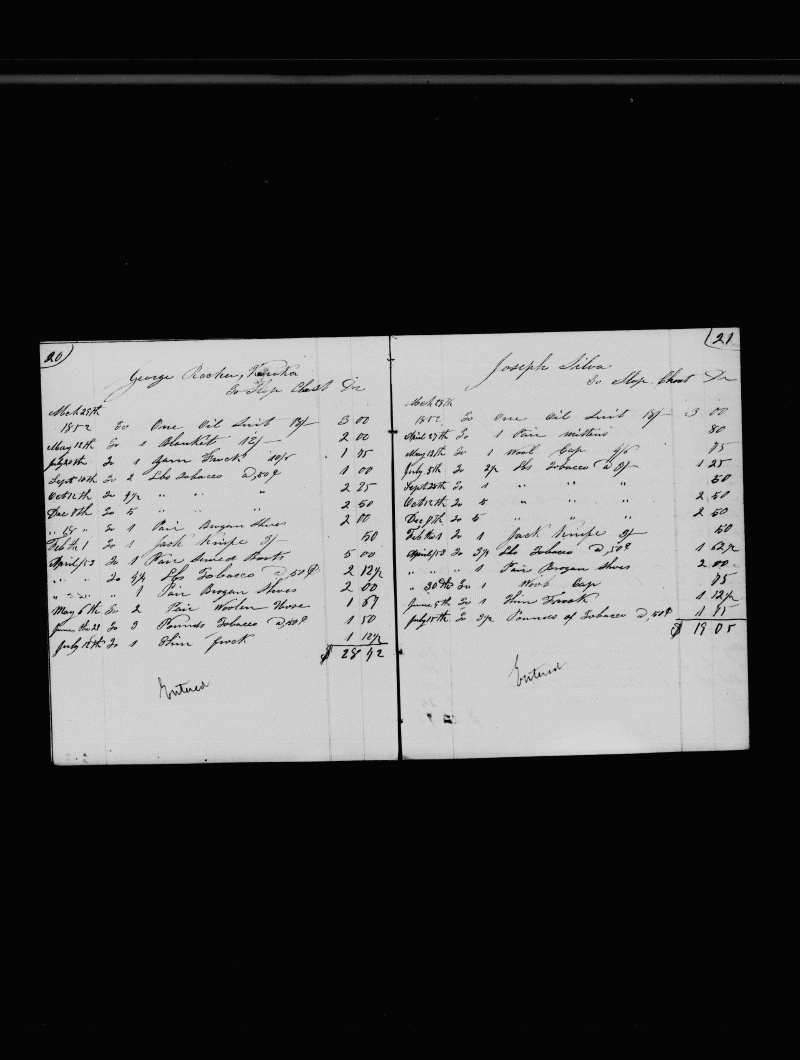 20
George Rocker, Kanaka
To Slop Chest Dr
Mch 29th
1852 To One Oil Suit 18/- 3 00
May 12th To 1 Blanket 12/- 2 00
July 20th To 1 Guern Frock 10/6 1 75
Sept 10th To 2 Lbs Tobacco @ ,50¢ 1 00
Oct 12th To 4 1/2 " " " 2 25
Dec 8th To 5 " " 2 50
" 18 " To 1 Pair Brogan Shoes 2 00
Feb th 1 To 1 Jack Knife 3/- 50
April /53 To 1 Pair Sewed Boots 5 00
" " To 4 1/4 Lbs Tobacco @ ,50¢ 2 12 1/2
" " " 1 Pair Brogan Shoes 2 00
May 6th To 2 Pair Woolen Hose 1 67
June the 28 To 3 Pounds Tobacco @ ,50¢ 1 50
July 15th To 1 Thin frock 1 12 1/2
$ 28 42
Entered
21
Joseph Silva
To Slop Chest Dr
Mch 29th
1852 To One Oil Suit 18/- 3 00
April 27th To 1 Pair Mittins 80
May 12th To 1 Wool Cap 4/6 75
July 5th To 2 1/2 Lbs Tobacco @ 3/- 1 25
Sept 28th To 1 " " " 50
Oct 12th To 5 " " " 2 50
Dec 8th To 5 " " " 2 50
Feb th 1 To 1 Jack Knife 3/- 50
April /53 To 3 1/4 Lbs Tobacco @ ,50¢ 1 62 1/2
" " " 1 Pair Brogan Shoes 2 00
" 30th To 1 Wool Cap 75
June 5th To 1 Thin Frock 1 12 1/2
July 15th To 3 1/2 Pounds of Tobacco @ ,50¢ 1 75
$ 19 05
Entered